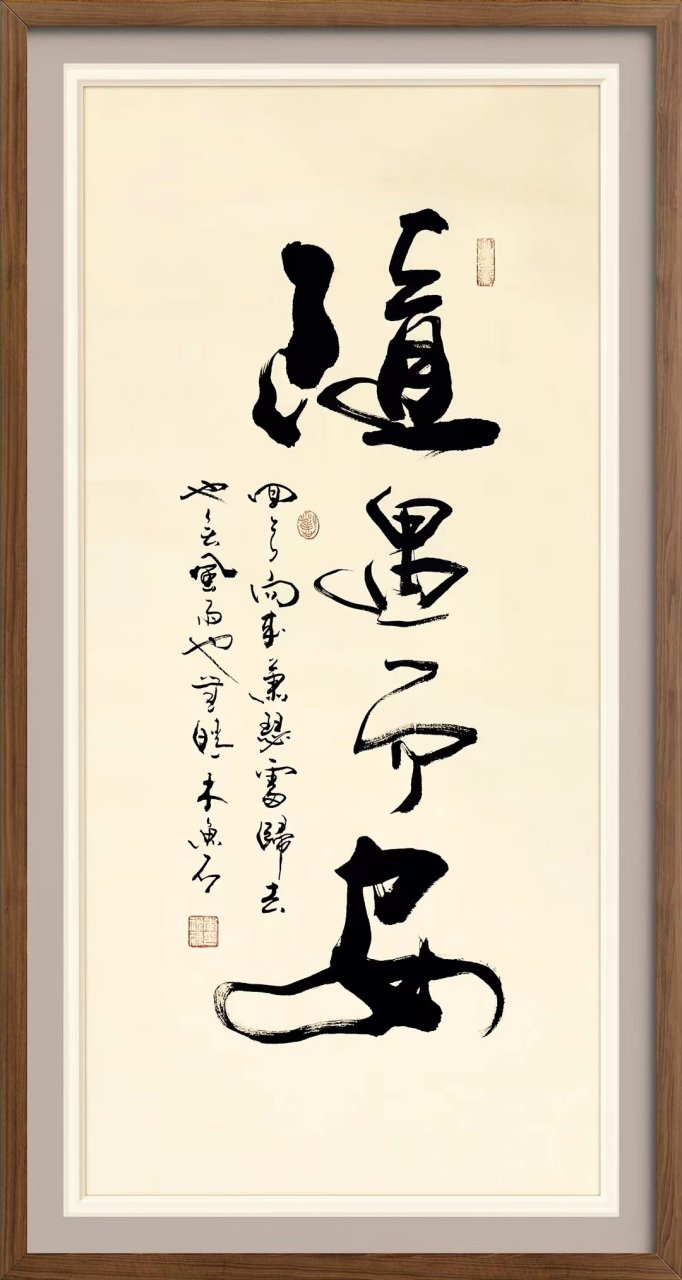 隨遇而安
回首向來蕭瑟處歸去
也無風雨也無晴木魚石